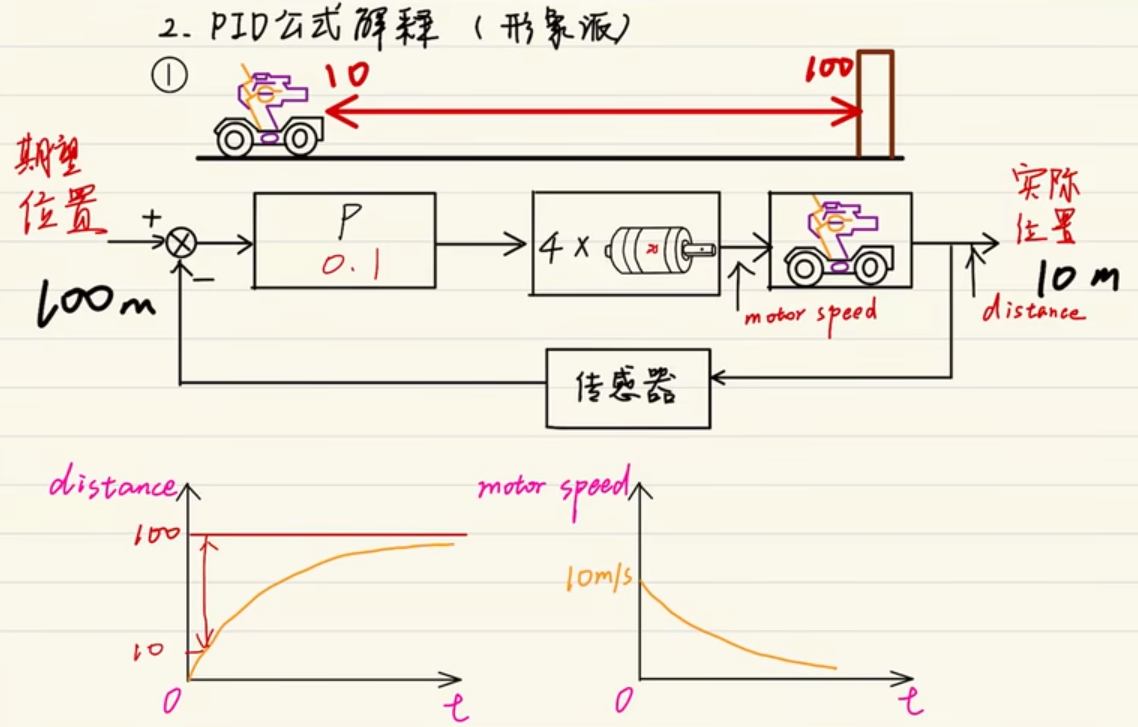 2. PID公式解释（形象派）
①
10
100
期望
位置
+
−
100m
P
0.1
4×
motor speed
实际
位置
10m
distance
传感器
distance
100
10
0
t
motor speed
10m/s
0
t